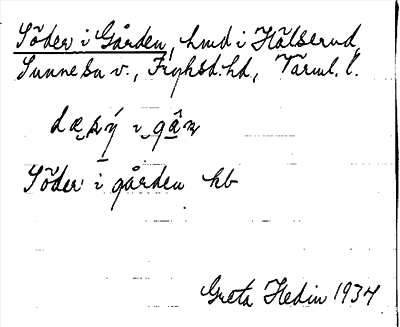 Söder i Gården, hmd i Hälserud,
Sunne sn v., Fryksd. hd, Värml. l.
i
Söder i gården kb
Greta Hedin 1934